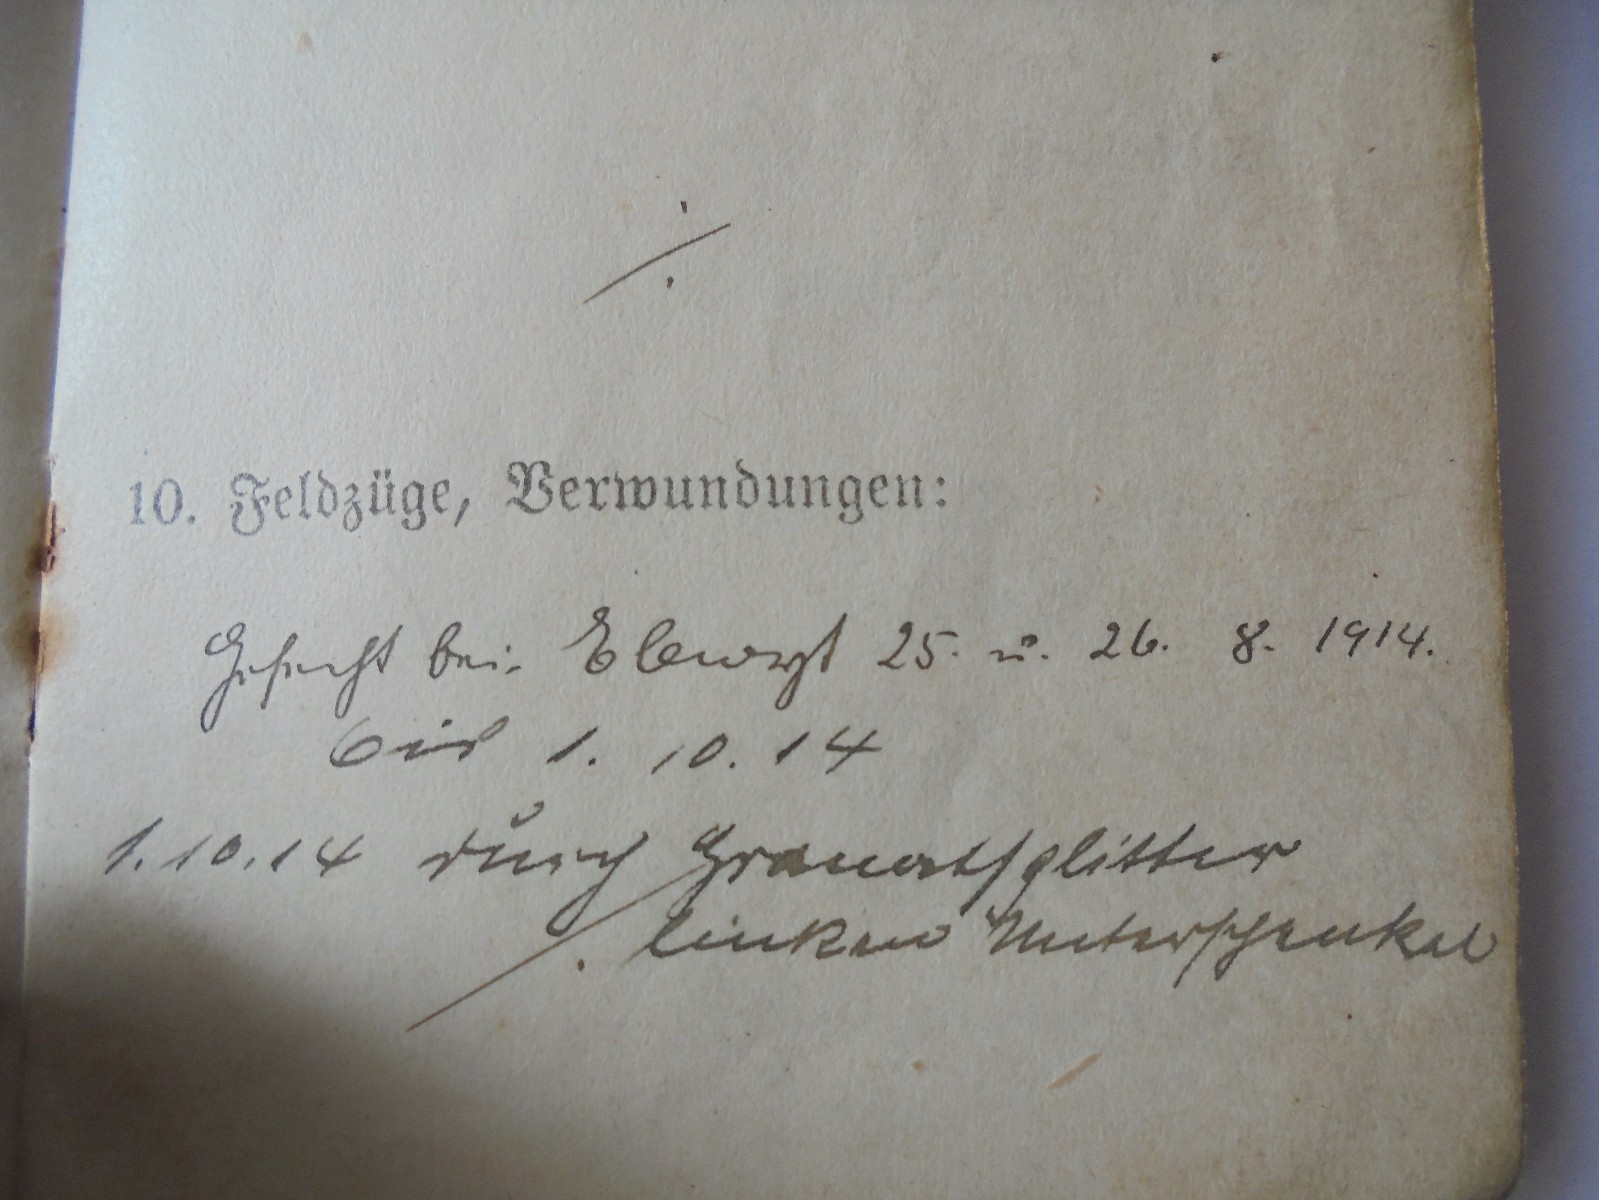 10. Feldzüge, Verwundungen:
Gefecht bei 25. u. 26. 8. 1914.
bis 1. 10. 14
1.10.14 durch Granatsplitter
linken Unterschenkel